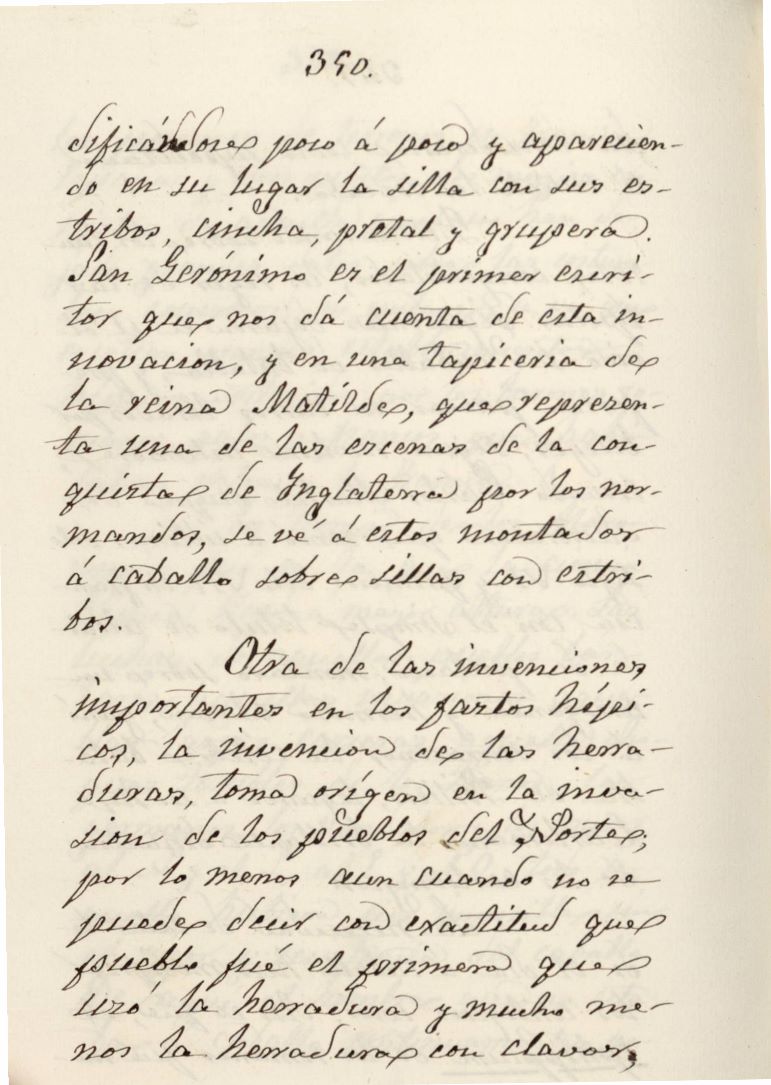 350.
dificándose poco á poco y aparecien-
do en su lugar la silla con sus es-
tribos, cincha, pretal y grupera.
San Gerónimo es el primer escri-
tor que nos dá cuenta de esta in-
novacion, y en una tapiceria de
la reina Matilde, que represen-
ta una de las escenas de la con-
quista de Inglaterra por los nor-
mandos, se vé á estos montados
á caballo sobre sillas con estri-
bos.
Otra de las invenciones
importantes en los fastos hépi-
cos, la invencion de las herra-
duras, toma orígen en la inva-
sion de los pueblos del Norte,
por lo menos aun cuando no se
puede decir con exactitud que
pueblo fué el primero que
usó la herradura y mucho me-
nos la herradura con clavos,